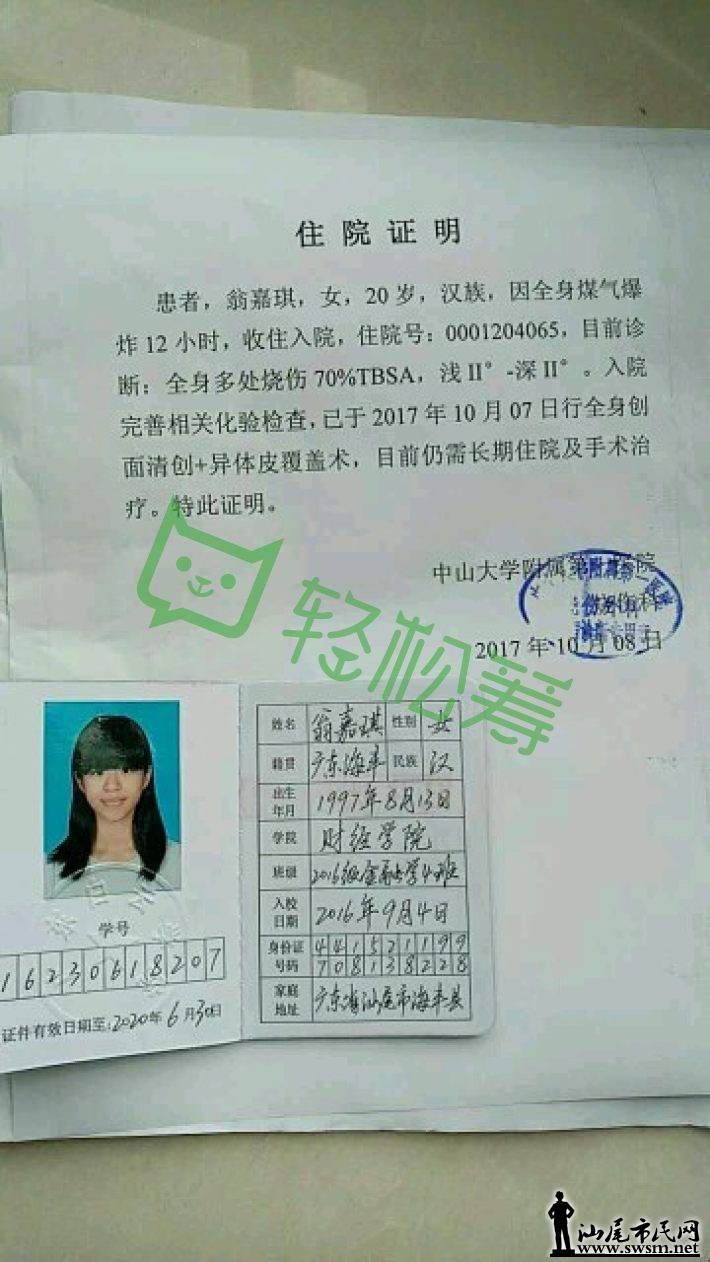 住院证明
患者，翁嘉琪，女，20岁，汉族，因全身煤气爆
炸12小时，收住入院，住院号：0001204065，目前诊
断：全身多处烧伤70%TBSA，浅II°-深II°。入院
完善相关化验检查，已于2017年10月07日行全身创
面清创+异体皮覆盖术，目前仍需长期住院及手术治
疗。特此证明。
中山大学附属第
院
2017年10月08日
轻松筹
姓名 翁嘉琪 性别 女
籍贯 广东海丰 民族 汉
出生年月 1997年8月13日
学院 财经学院
班级 2016级金融学4班
入校日期 2016年9月4日
身份证号码 441521199
708138228
家庭地址 广东省汕尾市海丰县
学号
16230618207
证件有效日期至:2020年6月30日
汕尾市民网
www.swsm.net